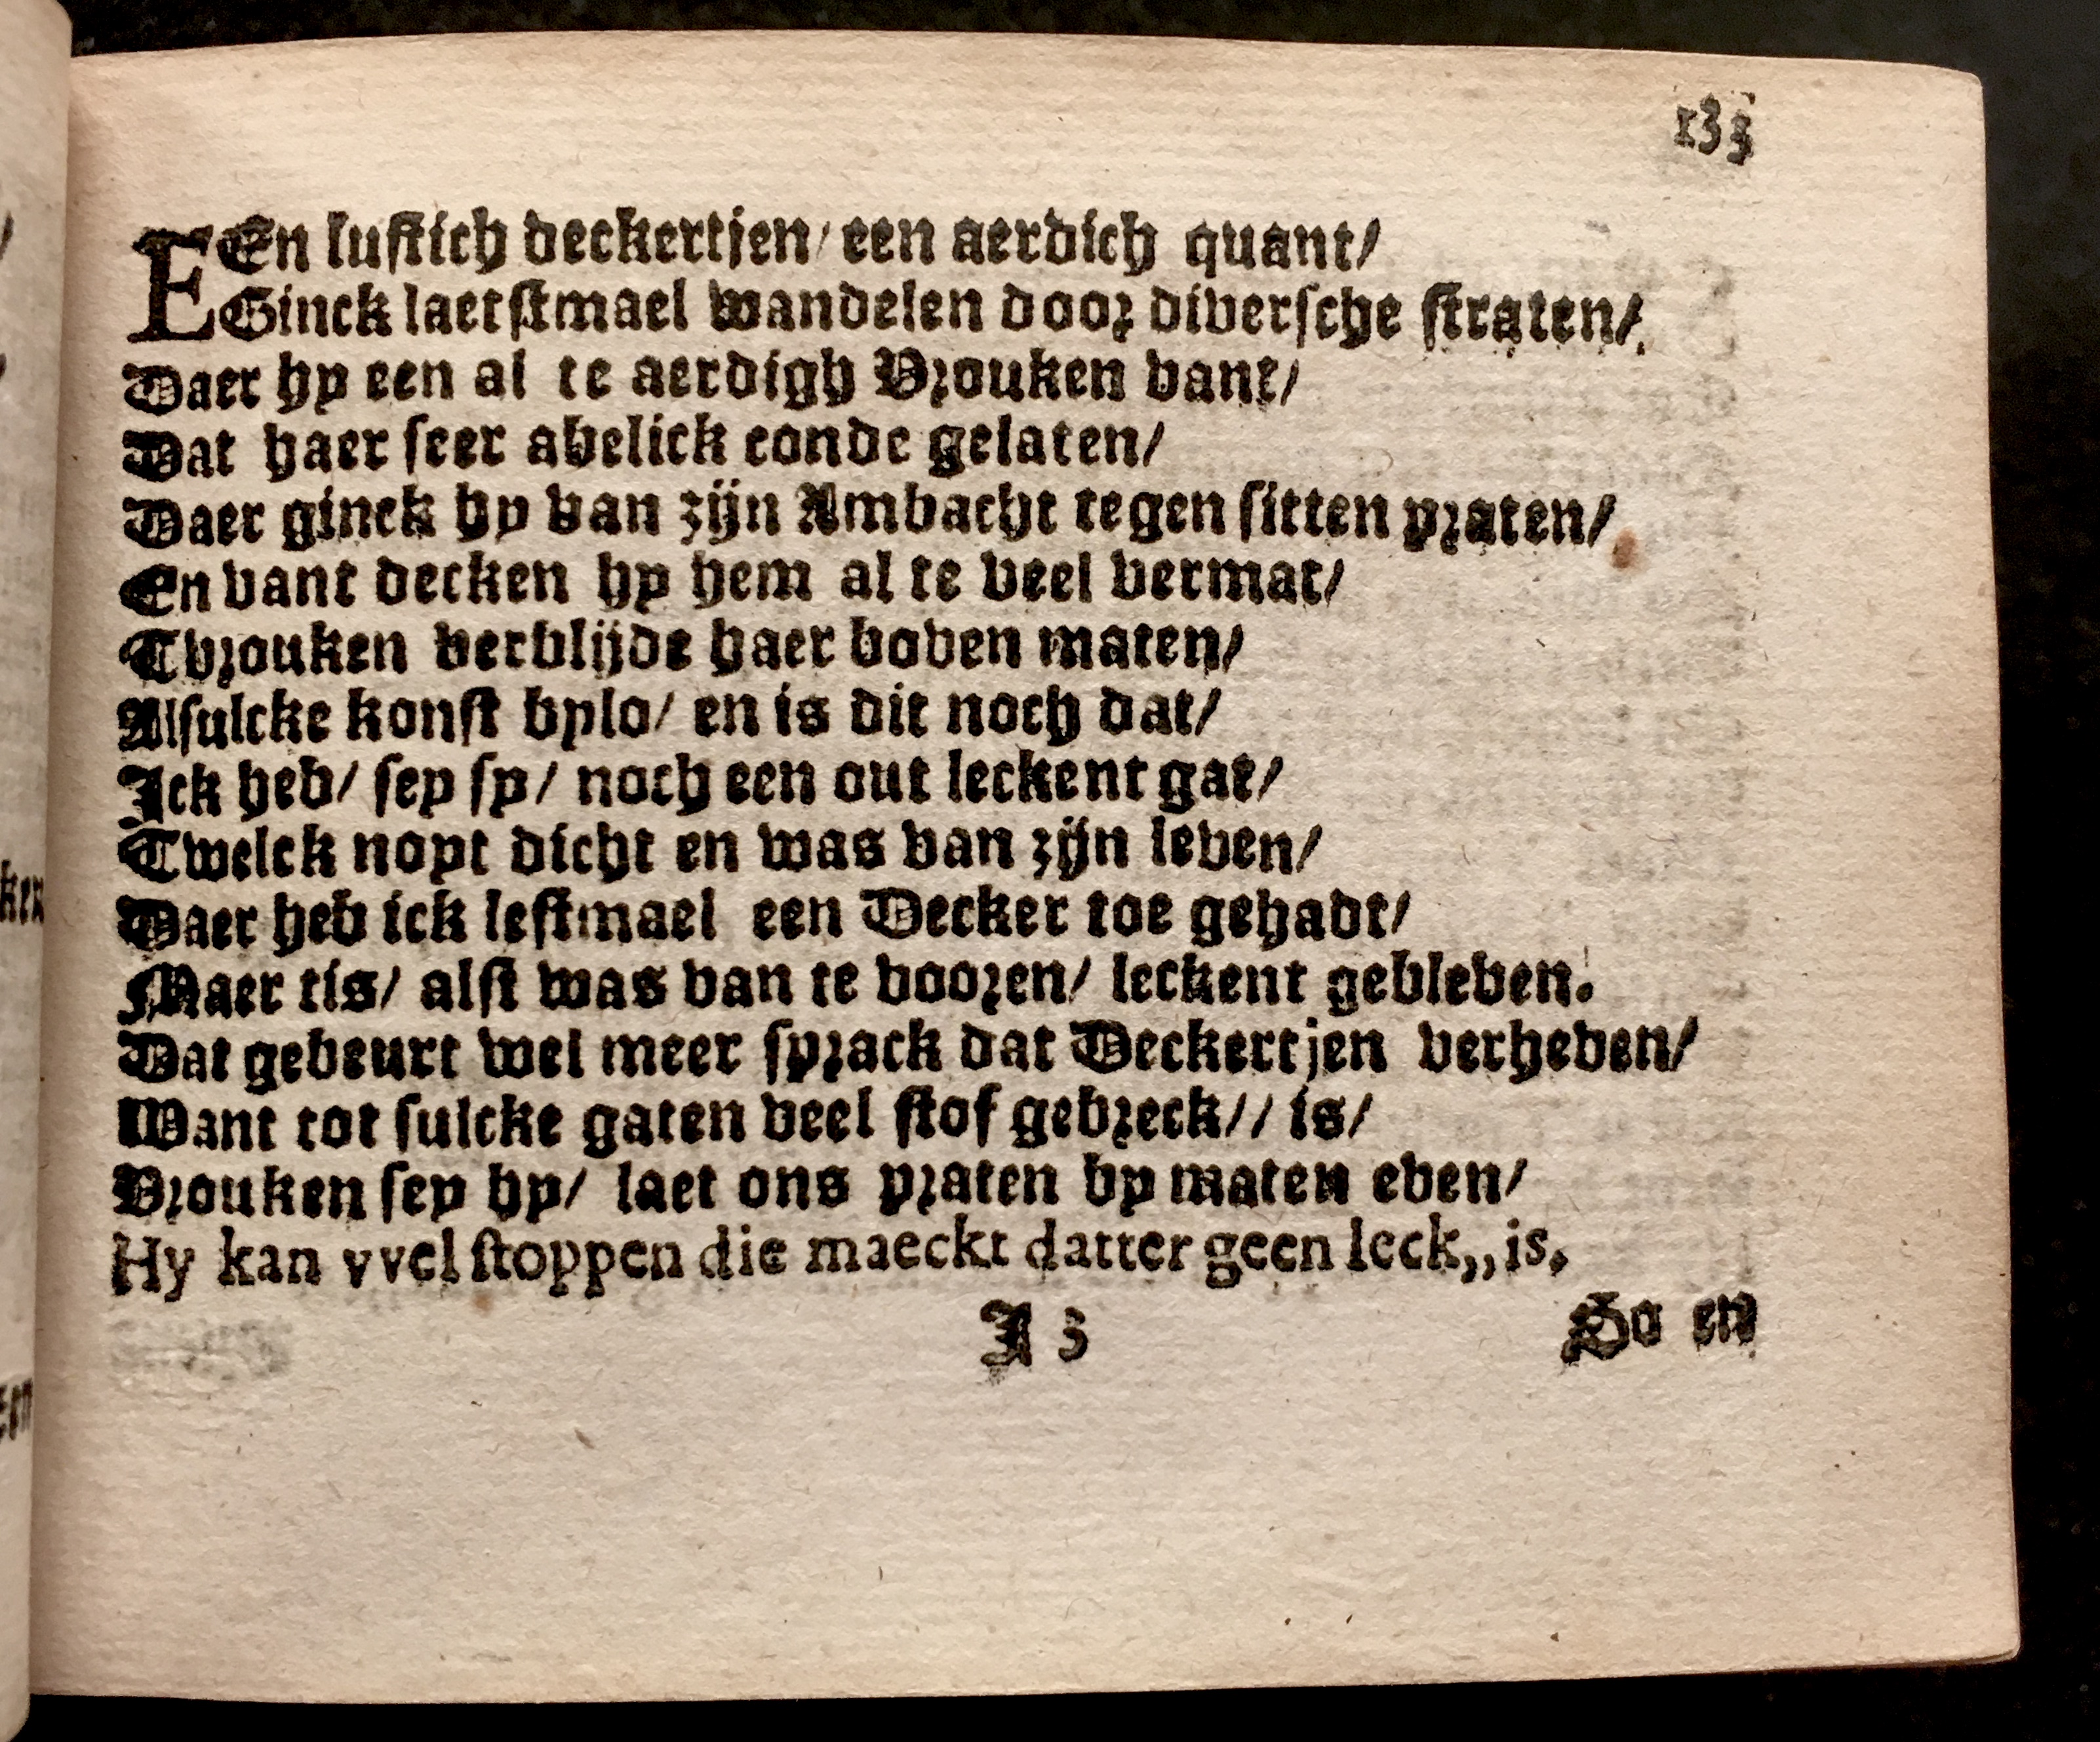 133
EEn lustich deckertjen/ een aerdich quant/
Ginck laetstmael wandelen door diversche straten/
Daer hy een al te aerdigh Vrouken vant/
Dat haer seer abelick conde gelaten/
Daer ginck hy van zijn Ambacht tegen sitten praten/
En vant decken hy hem al te veel vermat/
Tvrouken verblijde haer boven maten/
Alsulcke konst bylo/ en is dit noch dat/
Ick heb/ sey sy/ noch een out leckent gat/
Twelck noyt dicht en was van zijn leven/
Daer heb ick lestmael een Decker toe gehadt/
Maer tis/ alst was van te vooren/ leckent gebleven.
Dat gebeurt wel meer sprack dat Deckertjen verheven/
Want tot sulcke gaten veel stof gebreck// is/
Vrouken sey hy/ laet ons praten by maten even/
Hy kan vvel stoppen die maeckt datter geen leck,, is.
I 3 So en